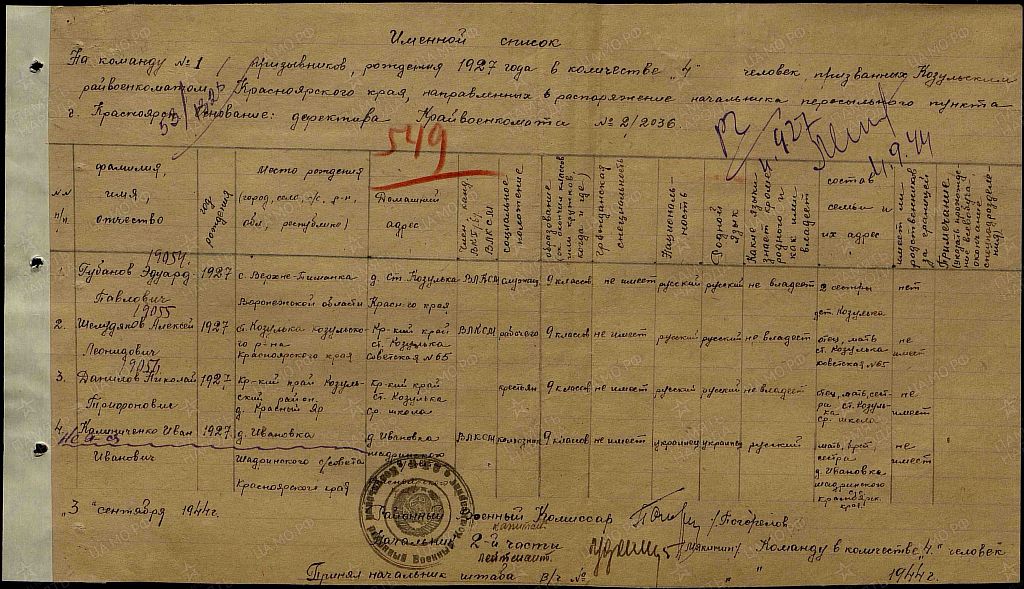 Именной список
На команду №1 / призывников, рождения 1927 года в количестве "4" человек, призванных Козульским
райвоенкоматом Красноярского края, направленных в распоряжение начальника пересыльного пункта
г. Красноярск Основание: деректива Крайвоенкомата № 2/2036.
549
4.9.44
№№ п/п
фамилия, имя, отчество
год рождения
Место рождения (город, село, с/с, р-н, обл., республика)
Домашний адрес
Член, канд. ВКП(б) ВЛКСМ
социальное положение
образование
гражданская специальность
Националь-ность
Родной язык
Какие языки знает кроме родного и как ими владеет
состав семьи и их адрес
имеет ли родственников за границей
Примечание
19054.
1. Губанов Эдуард Павлович 1927 с. Верхне- Воронежской области д. Ст. Козулька Красн-го края ВЛКСМ служащ. 9 классов не имеет русский русский не владеет 2 сестры ст. Козулька нет
19055
2. Шелудяков Алексей Леонидович 1927 ст. Козулька козульско-го р-на Красноярского края Кр-кий край ст. Козулька советская №65 ВЛКСМ рабочего 9 классов не имеет русский русский не владеет отец, мать ст. Козулька советская №65 не имеет
19056
3. Данилов Николай Трифонович 1927 Кр-кий край Козуль-ский район д. Красный Яр Кр-кий край ст. Козулька ср. школа крестьян 9 классов не имеет русский русский не владеет отец, мать, сест-ра ст. Козуль-ка ср. школа не имеет
4. Калиниченко Иван Иванович 1927 д. Ивановка Шадринского с/совета Красноярского край д. Ивановка шадринского ВЛКСМ колхозник 9 классов не имеет украинец украинец русский мать, брат, сестра д. Ивановка шадринского с/с Красноярск. края не имеет
"3" сентября 1944г.
Районный Военный Комиссар /Погорелов
капитан
Начальник 2-й части
лейтенант.
Команду в количестве "4" человек
Принял начальник штаба в/ч № " " 1944г.